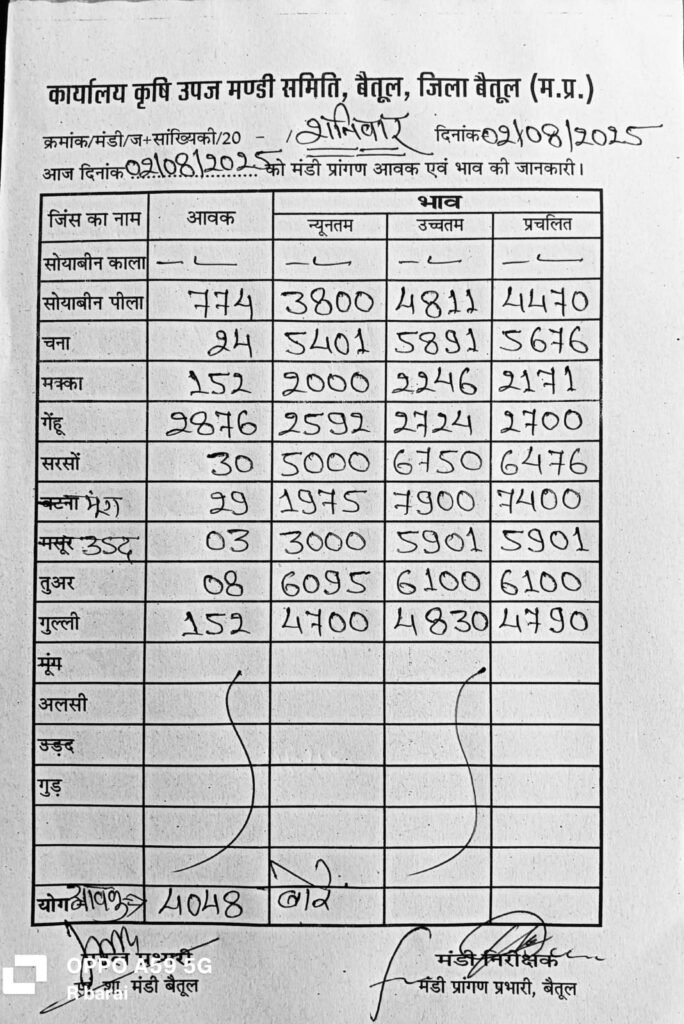 कार्यालय कृषि उपज मण्डी समिति, बैतूल, जिला बैतूल (म.प्र.)
क्रमांक/मंडी/ज+सांख्यिकी/20 - / शनिवार दिनांक 02/08/2025
आज दिनांक 02/08/2025 को मंडी प्रांगण आवक एवं भाव की जानकारी।
जिंस का नाम आवक भाव
न्यूनतम उच्चतम प्रचलित
सोयाबीन काला — — — —
सोयाबीन पीला 774 3800 4811 4470
चना 24 5401 5891 5676
मक्का 152 2000 2246 2171
गेंहू 2876 2592 2724 2700
सरसों 30 5000 6750 6476
बटना मूंग 29 1975 7900 7400
मसूर उडद 03 3000 5901 5901
तुअर 08 6095 6100 6100
गुल्ली 152 4700 4830 4790
मूंग
अलसी
उड़द
गुड़
योग आवक 4048 बोरे
प्रभारी मंडी निरीक्षक
शा. मंडी बैतूल मंडी प्रांगण प्रभारी, बैतूल
OPPO A59 5G
R barai